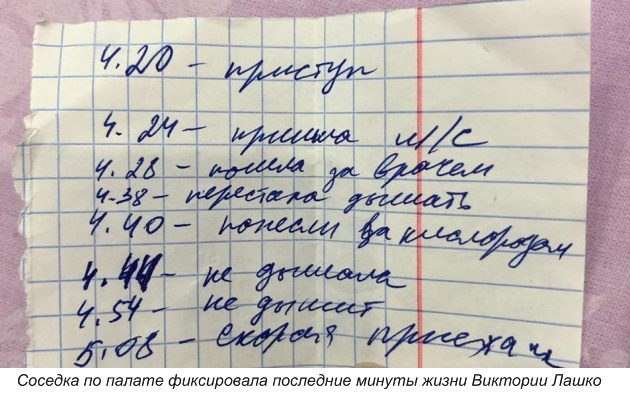 4.20 – приступ
4.24 – пришла м/с
4.28 – пошла за врачем
4.38 – перестала дышать
4.40 – понесли за кислородом
4.44 – не дышала
4.54 – не дышит
5.08 – скорая приехала
Соседка по палате фиксировала последние минуты жизни Виктории Лашко